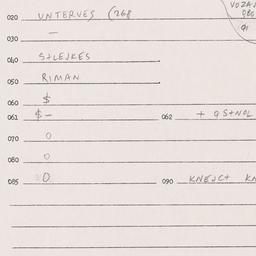 VOZA
020 UNTERVES (268 080
91
030 –
040 S+LEJKES
050 RIMAN
060 $
061 $ – 062 + QS+NOL
070 0
080 0
085 0 090 KNEJC+ KN